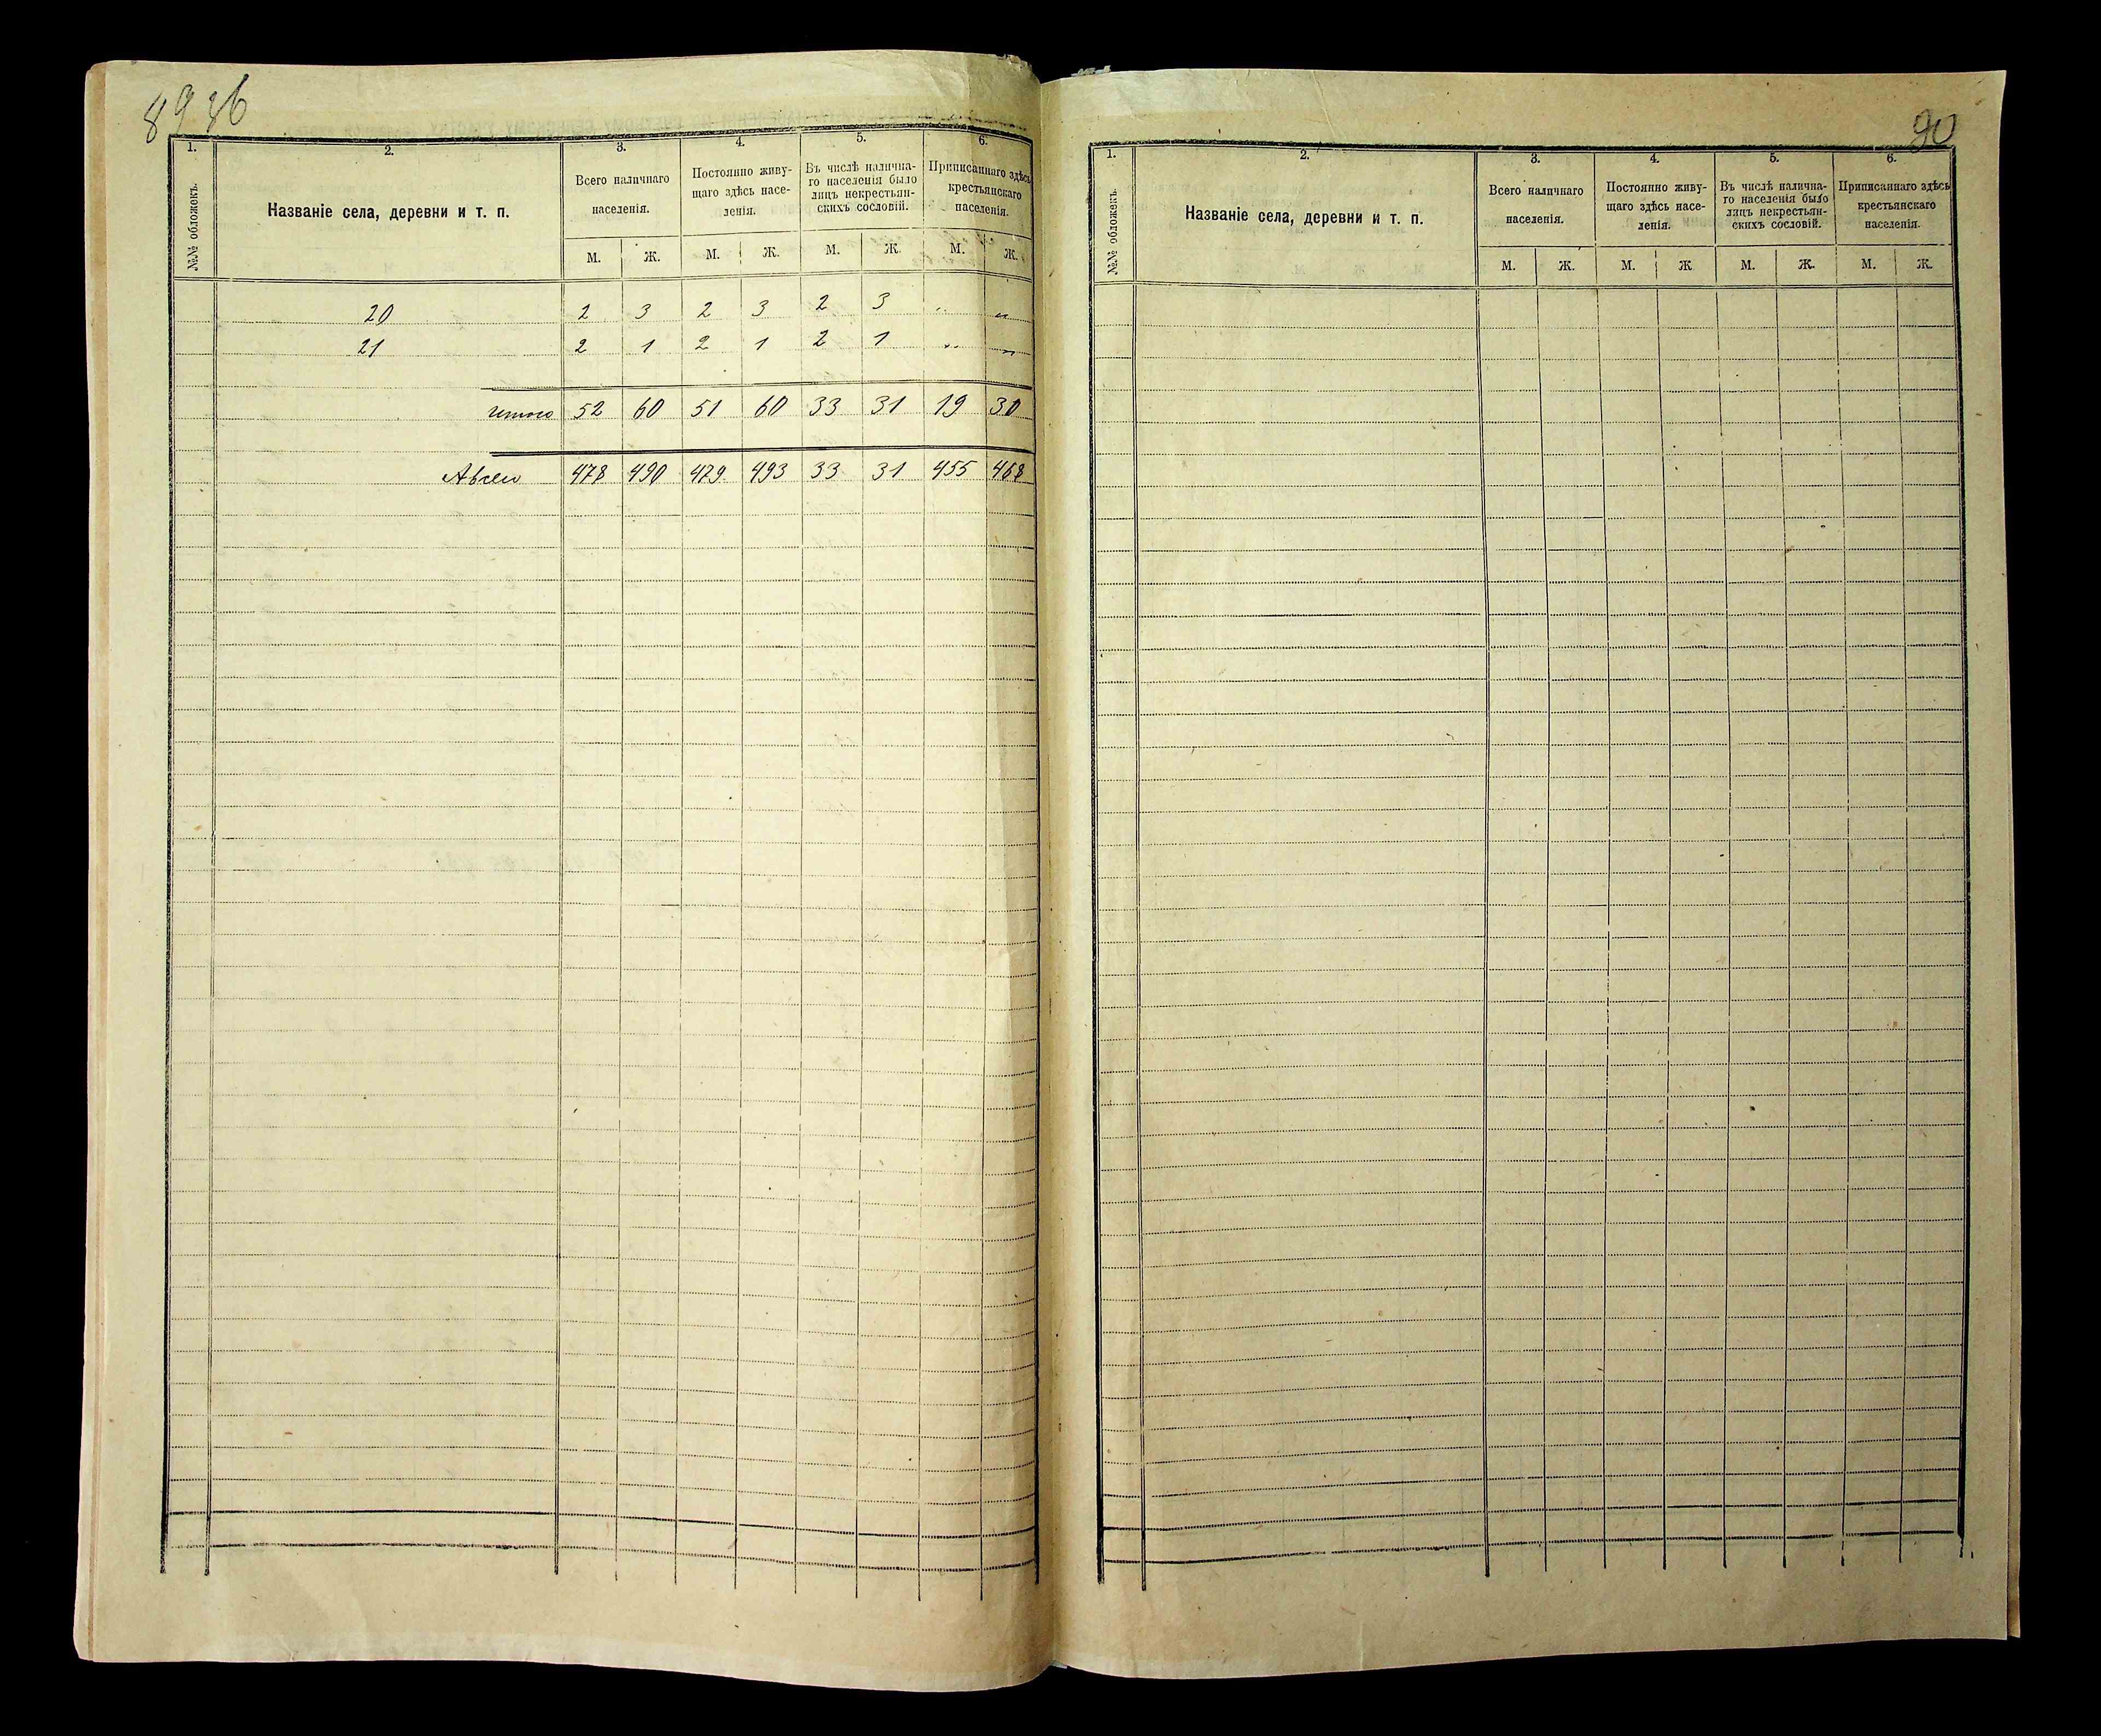 89 об
1. 2. 3. 4. 5. 6.
№№ обложекъ.
Названіе села, деревни и т. п.
Всего наличнаго населенія.
Постоянно живу-
щаго здѣсь насе-
ленія.
Въ числѣ налична-
го населенія было
лицъ некрестьян-
скихъ сословій.
Приписаннаго здѣсь
крестьянскаго
населенія.
М. Ж. М. Ж. М. Ж. М. Ж.
20 2 3 2 3 2 3 „ „
21 2 1 2 1 2 1 „ „
Итого 52 60 51 60 33 31 19 30
А всего 478 490 479 493 33 31 455 468
90
1. 2. 3. 4. 5. 6.
№№ обложекъ.
Названіе села, деревни и т. п.
Всего наличнаго
населенія.
Постоянно живу-
щаго здѣсь насе-
ленія.
Въ числѣ налична-
го населенія было
лицъ некрестьян-
скихъ сословій.
Приписаннаго здѣсь
крестьянскаго
населенія.
М. Ж. М. Ж М. Ж. М. Ж.